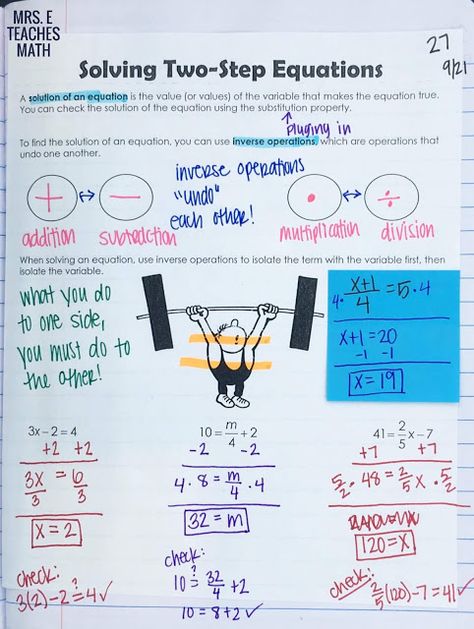 MRS. E
TEACHES
MATH
27
9/21
Solving Two-Step Equations
A solution of an equation is the value (or values) of the variable that makes the equation true.
You can check the solution of the equation using the substitution property.
↑
Pluging in
To find the solution of an equation, you can use inverse operations, which are operations that
undo one another.
inverse operations
"undo"
each other!
+ ↔ −
addition subtraction
• ↔ ÷
multiplication division
When solving an equation, use inverse operations to isolate the term with the variable first, then
isolate the variable.
what you do
to one side,
you must do to
the other!
4 · (x+1)/4 = 5 · 4
x+1=20
-1 -1
x=19
3x − 2 = 4
+2 +2
3x/3 = 6/3
x=2
check:
3(2)-2 ≟ 4 ✓
10 = m/4 + 2
-2 -2
4 · 8 = m/4 · 4
32 = m
check:
10 ≟ 32/4 +2
10 = 8+2 ✓
41 = 2/5 x − 7
+7 +7
5/2 · 48 = 2/5 x · 5/2
120=x
check:
2/5(120)-7=41 ✓